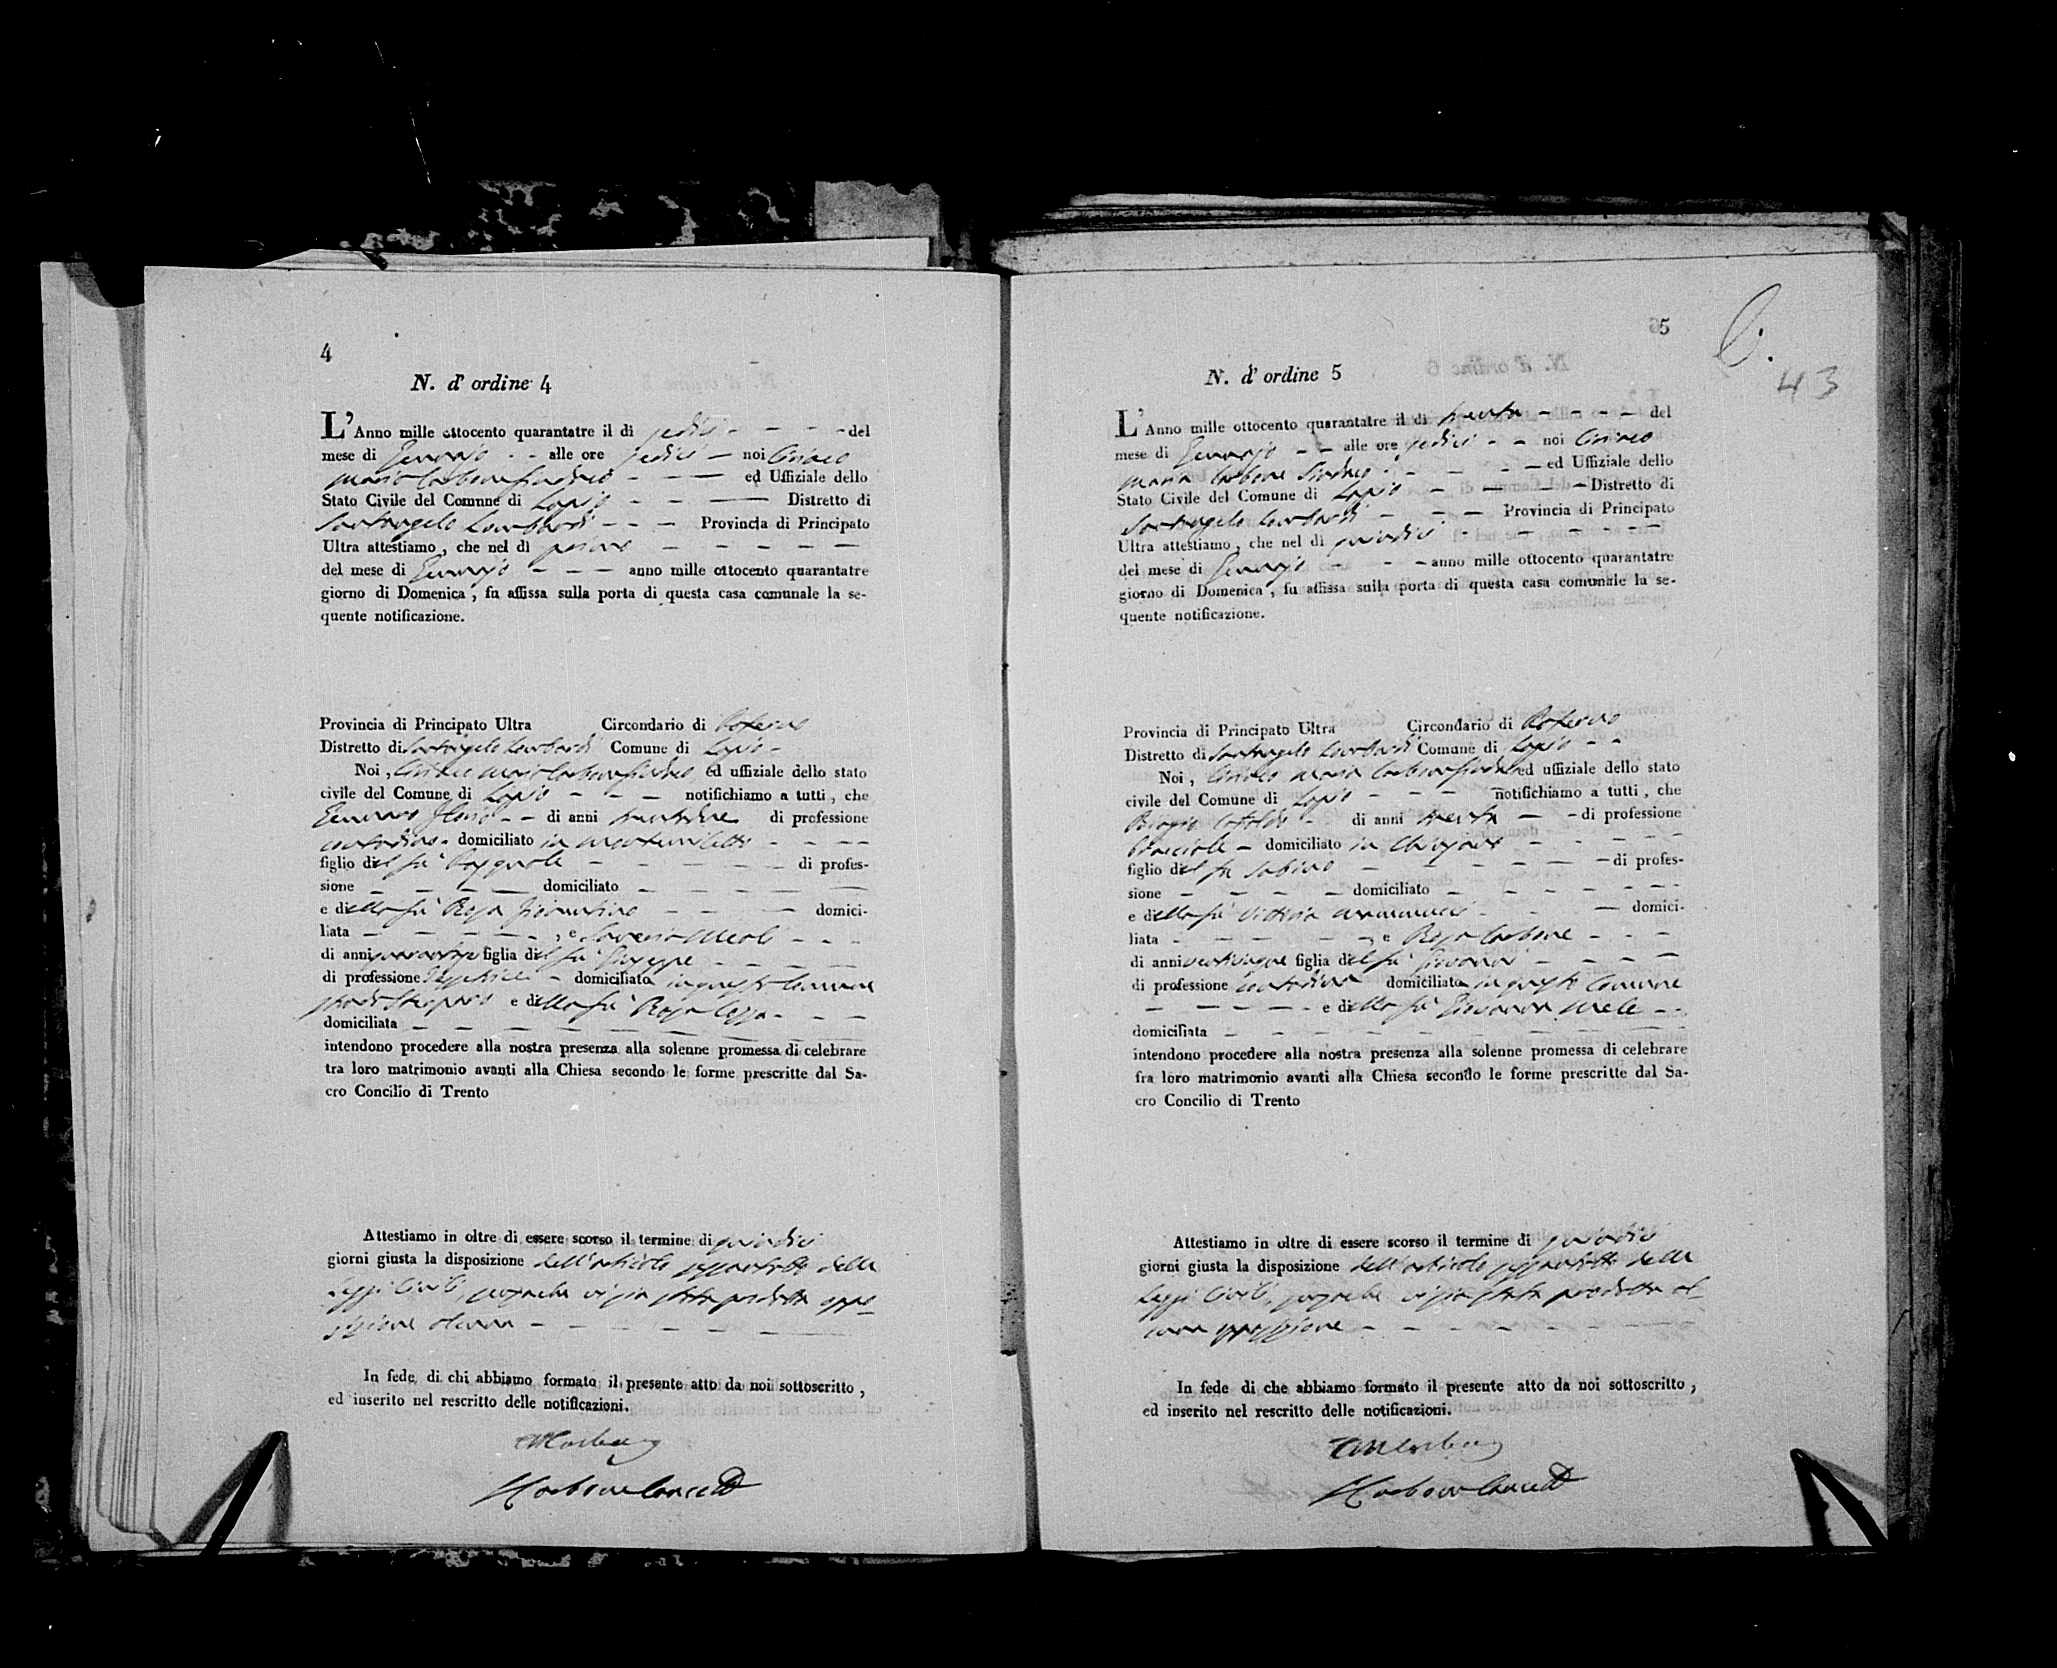 4
N. d' ordine 4
L' Anno mille ottocento quarantatre il di sedici - - - - del
mese di Gennajo - - alle ore sedici - noi Ciriaco
Maria Carbone Sindaco - - - ed Uffiziale dello
Stato Civile del Comune di Lapio - - - Distretto di
Santangelo Lombardi - - - Provincia di Principato
Ultra attestiamo, che nel dì primo - - - - - -
del mese di Gennajo - - - anno mille ottocento quarantatre
giorno di Domenica, fu affissa sulla porta di questa casa comunale la se-
quente notificazione.
Provincia di Principato Ultra Circondario di
Distretto di Santangelo Lombardi Comune di Lapio -
Noi, Ciriaco Maria Carbone Sindaco ed uffiziale dello stato
civile del Comune di Lapio - - - notifichiamo a tutti, che
Gennaro - - di anni trentadue di professione
contadino - domiciliato in Montemiletto - - - -
figlio del fu Pasquale - - - - - - di profes-
sione - - - - domiciliato - - - - -
e della fu Rosa Fiorentino - - - domici-
liata - - - - - -, e Saveria Meoli - - -
di anni figlia del fu Giuseppe - - - - -
di professione - domiciliata in questo Comune
e della fu Rosa - - -
domiciliata - - - - - - - - - -
intendono procedere alla nostra presenza alla solenne promessa di celebrare
tra loro matrimonio avanti alla Chiesa secondo le forme prescritte dal Sa-
cro Concilio di Trento
Attestiamo in oltre di essere scorso il termine di quindici
giorni giusta la disposizione dell'articolo sessantotto delle
Leggi Civili, senza che vi sia stata prodotta oppo-
sizione alcuna - - - - - - -
In fede di chi abbiamo formato il presente atto da noi sottoscritto,
ed inserito nel rescritto delle notificazioni.
CMCarbone
Carbone Cancell
5
6.
43
N. d' ordine 5
L' Anno mille ottocento quarantatre il di trenta - - - - del
mese di Gennajo - - alle ore sedici - - noi Ciriaco
Maria Carbone Sindaco - - - - - ed Uffiziale dello
Stato Civile del Comune di Lapio - - - - Distretto di
Santangelo Lombardi - - - Provincia di Principato
Ultra attestiamo, che nel di quindici - - - - - -
del mese di Gennajo - - - anno mille ottocento quarantatre
giorno di Domenica, fu affissa sulla porta di questa casa comunale la se-
quente notificazione.
Provincia di Principato Ultra Circondario di
Distretto di Santangelo Lombardi Comune di Lapio - -
Noi, Ciriaco Maria Carbone Sindaco ed uffiziale dello stato
civile del Comune di Lapio - - - notifichiamo a tutti, che
Biagio Cataldo - di anni trenta - - di professione
bracciale - domiciliato in Chiusano - - - -
figlio del fu Sabino - - - - - - - di profes-
sione - - - - - domiciliato - - - - - - -
e della fu Vittoria - - - domici-
liata - - - - -, e Rosa Carbone - - -
di anni venticinque figlia del fu Giovanni - - - - -
di professione contadina domiciliata in questo Comune
- - - - - e della fu Giovanna Mele - -
domiciliata - - - - - - - - - - -
intendono procedere alla nostra presenza alla solenne promessa di celebrare
fra loro matrimonio avanti alla Chiesa secondo le forme prescritte dal Sa-
cro Concilio di Trento
Attestiamo in oltre di essere scorso il termine di quindici
giorni giusta la disposizione dell'articolo sessantotto delle
Leggi Civili, senza che vi sia stata prodotta al-
cuna opposizione - - - - - - - -
In fede di che abbiamo formato il presente atto da noi sottoscritto,
ed inserito nel rescritto delle notificazioni.
CMCarbone
Carbone Cancell